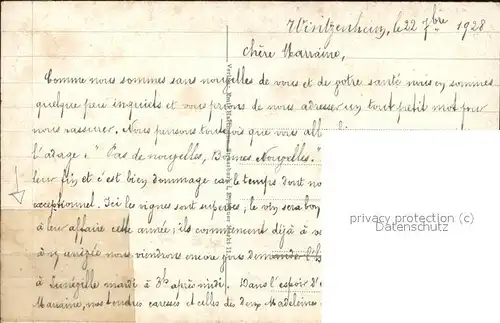 Wintzenheim, le 22 7bre 1928
Chère Marraine,
Comme nous sommes sans nouvelles de vous et de votre santé nous en sommes
quelque peu inquiets et vous prions de nous adresser un tout petit mot pour
nous rassurer. Nous pensons toutefois que vous
l'adage: "Pas de nouvelles, Bonnes Nouvelles."
leur fin et c'est bien dommage car le temps dont
exceptionnel. Ici les vignes sont superbes; le vin sera bon
à leur affaire cette année; ils commencent déjà à
nous viendrons encore
à Lunéville mardi à 3h après midi. Dans l'espoir
Marraine, nos tendres caresses et celles des deux Madeleines
privacy protection (c)
Datenschutz